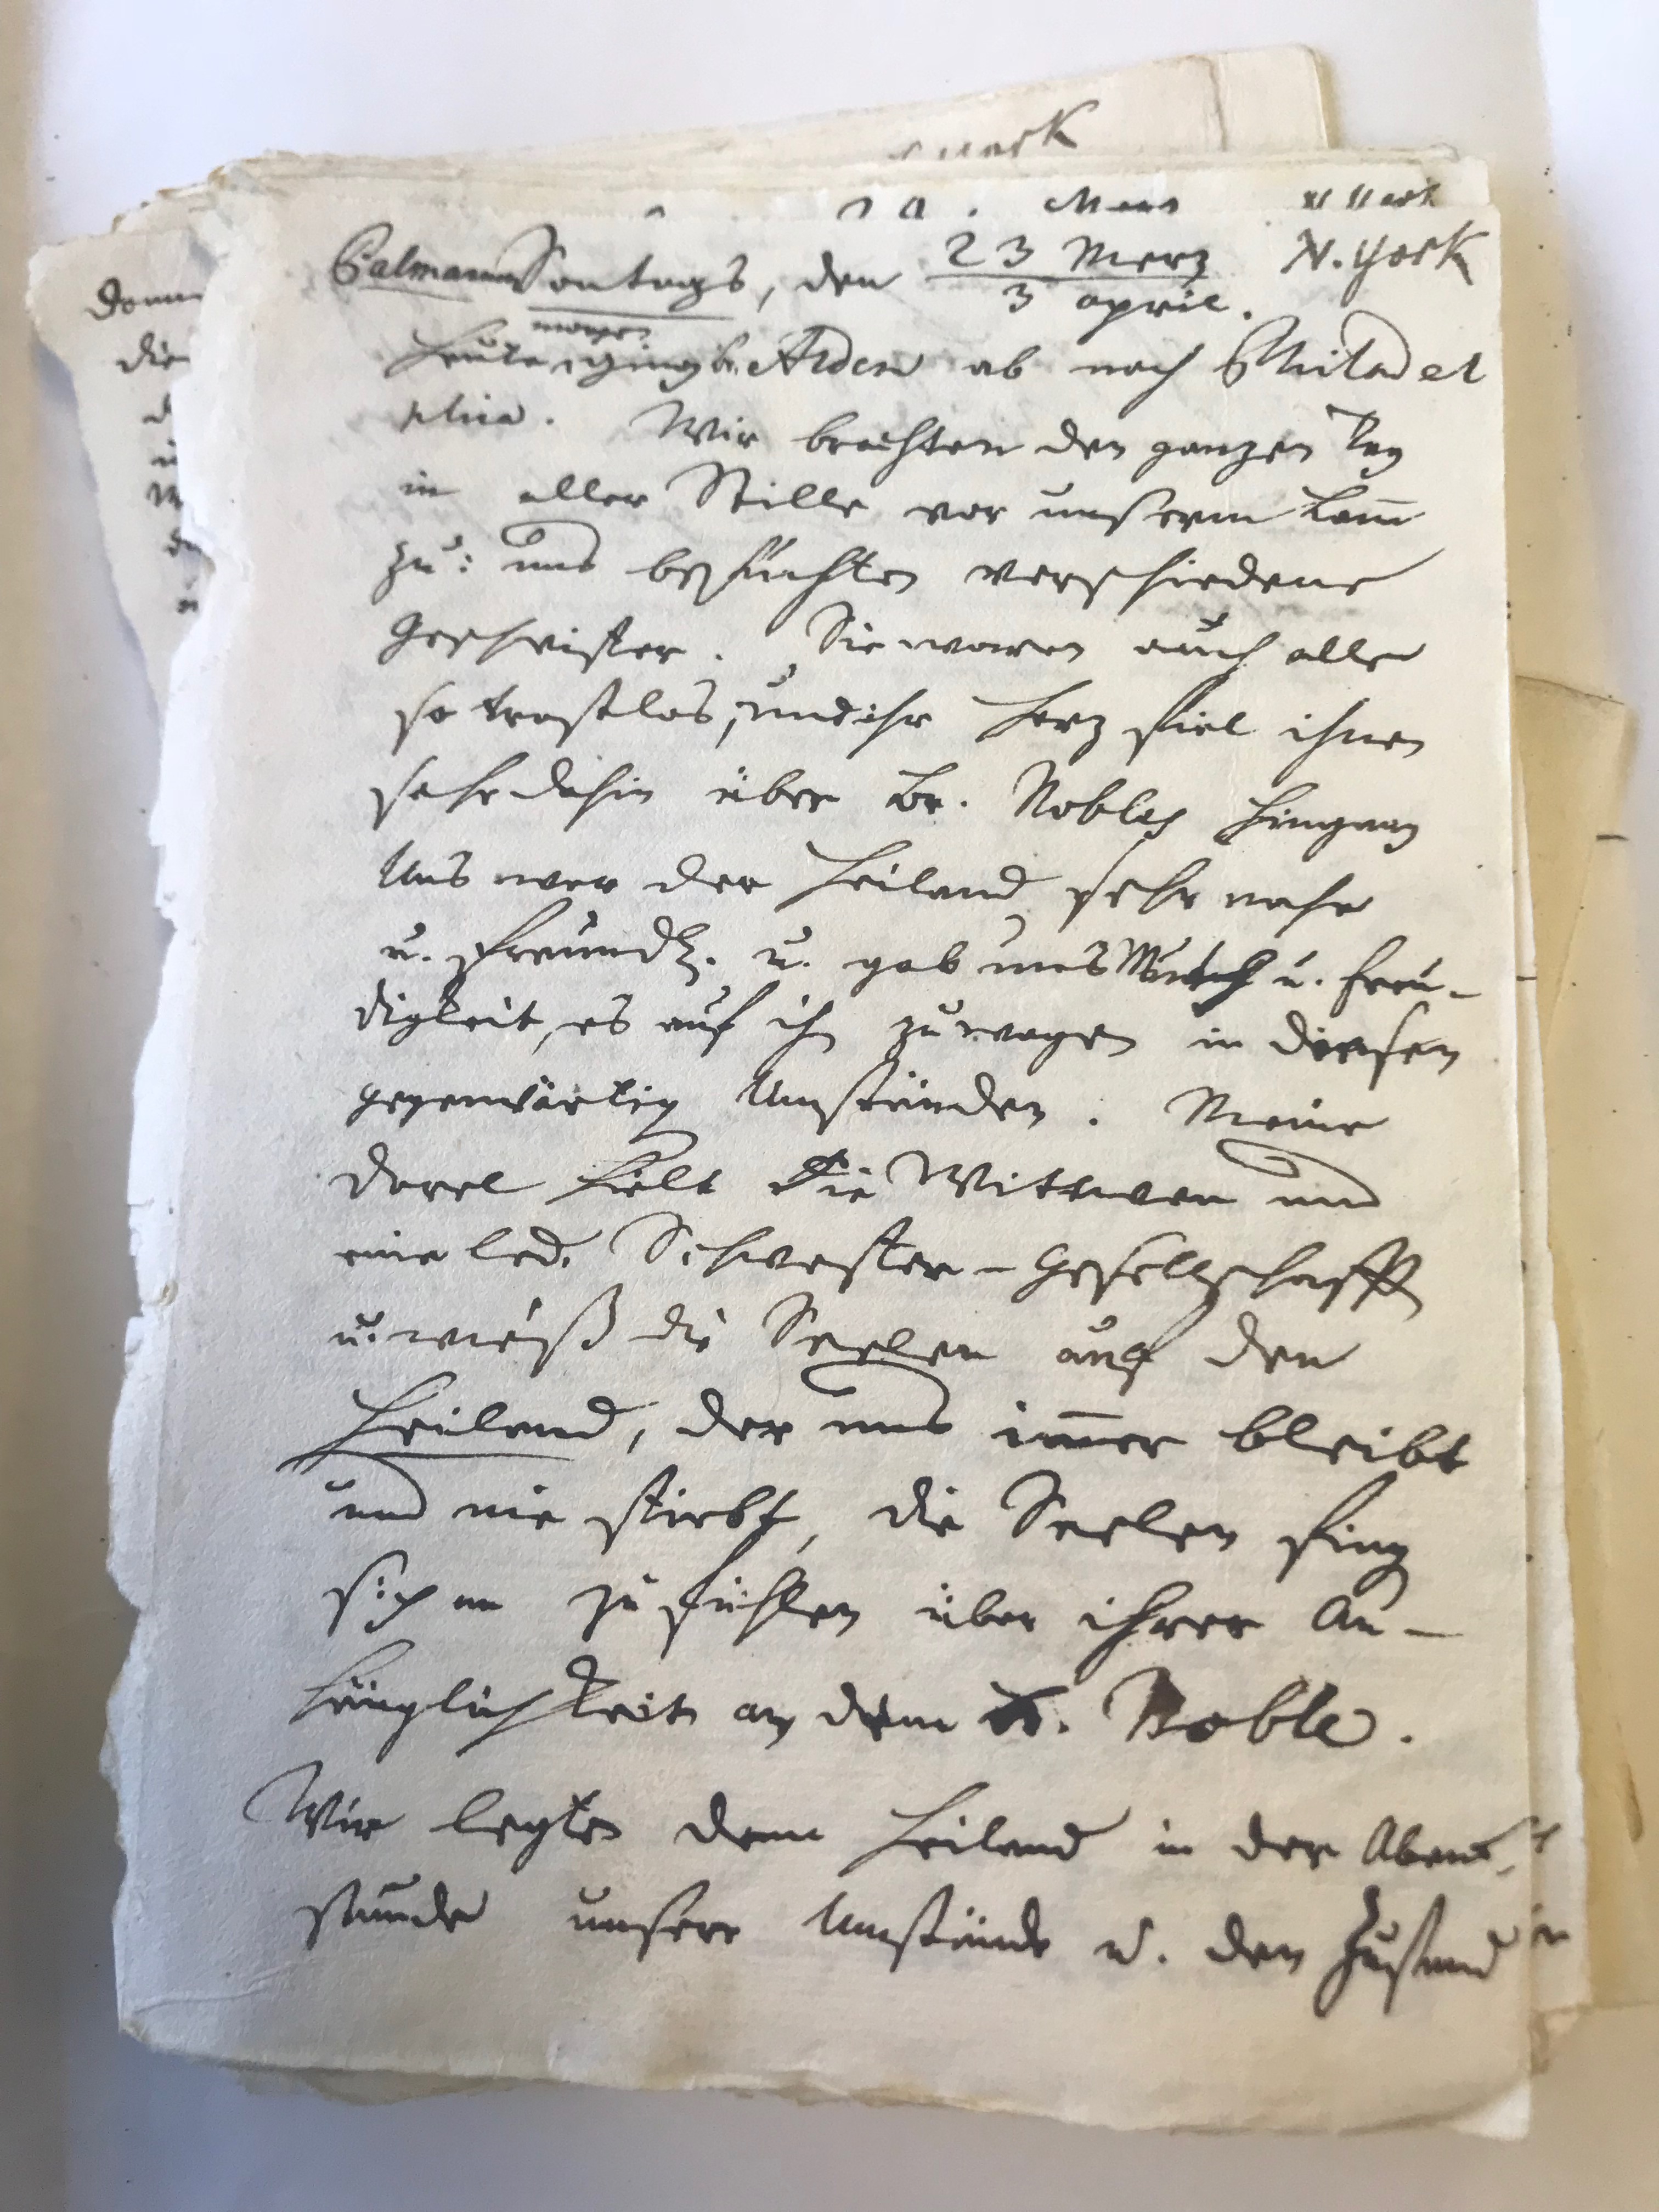 Palmarum Sontags, den 23 Merz / 3 april. N. York
Heute morgen ging br. Arden ab nach Philadel
phia. Wir brachten den ganzen Tag
in aller Stille vor unserm Lam̅
zu: und besuchten verschiedene
Geschwister. Sie waren auch alle
so trostlos, und ihr Herz fiel ihnen
sehr dahin über Br. Nobles Hingang
Uns war der Heiland sehr nahe
u. freundl. u. gab uns Muth u. Freu-
digkeit, es auf ihn zu wagen in diesen
gegenwärtig Umständen. Meine
Dorel hielt die Wittwen und
eine led. Schwester-Gesellschafft
u. wieß die Seelen auf den
Heiland, der uns im̅er bleibt
und nie stirbt, die Seelen fing
sich an zu fühlen über ihrer An-
hänglichkeit an dem Br. Noble.
Wir legten dem Heiland in der Abend-
stunde unsere Umstände u. den Zustand